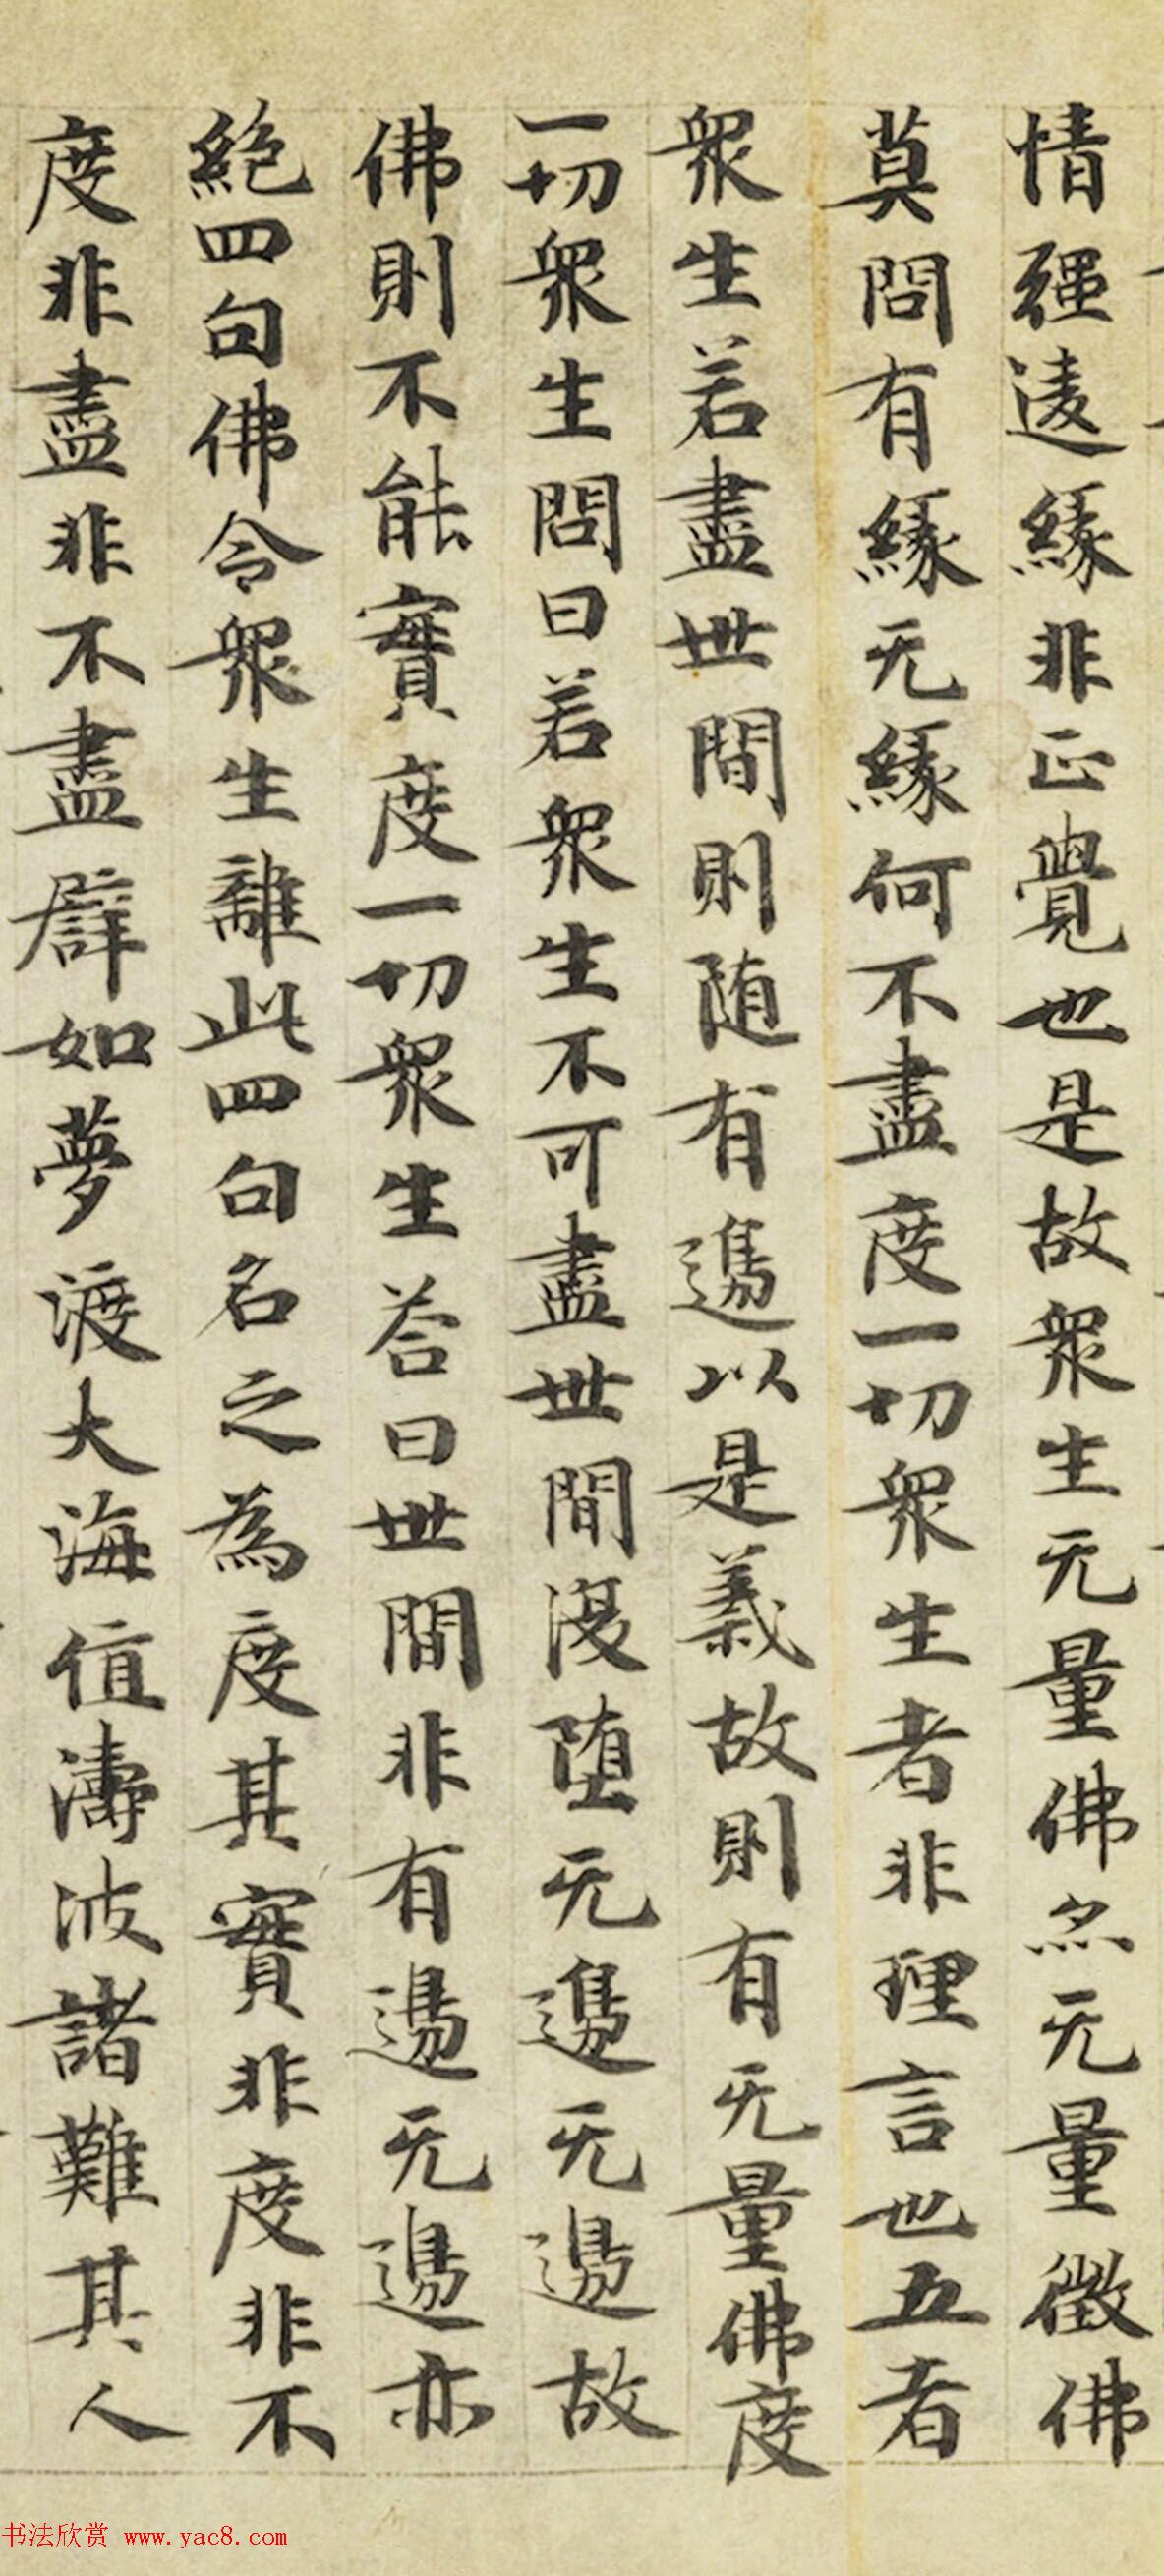 情彊逺緣非正覺也是故衆生无量佛尒无量徴佛
莫問有緣无緣何不盡度一切衆生者非理言也五者
衆生若盡世間則随有邊以是義故則有无量佛度
一切衆生問曰若衆生不可盡世間復堕无邊无邊故
佛則不能實度一切衆生荅曰世間非有邊无邊亦
絶四句佛令衆生離此四句名之為度其實非度非不
度非盡非不盡辟如夢渡大海值濤波諸難其人
书法欣赏 www.yac8.com